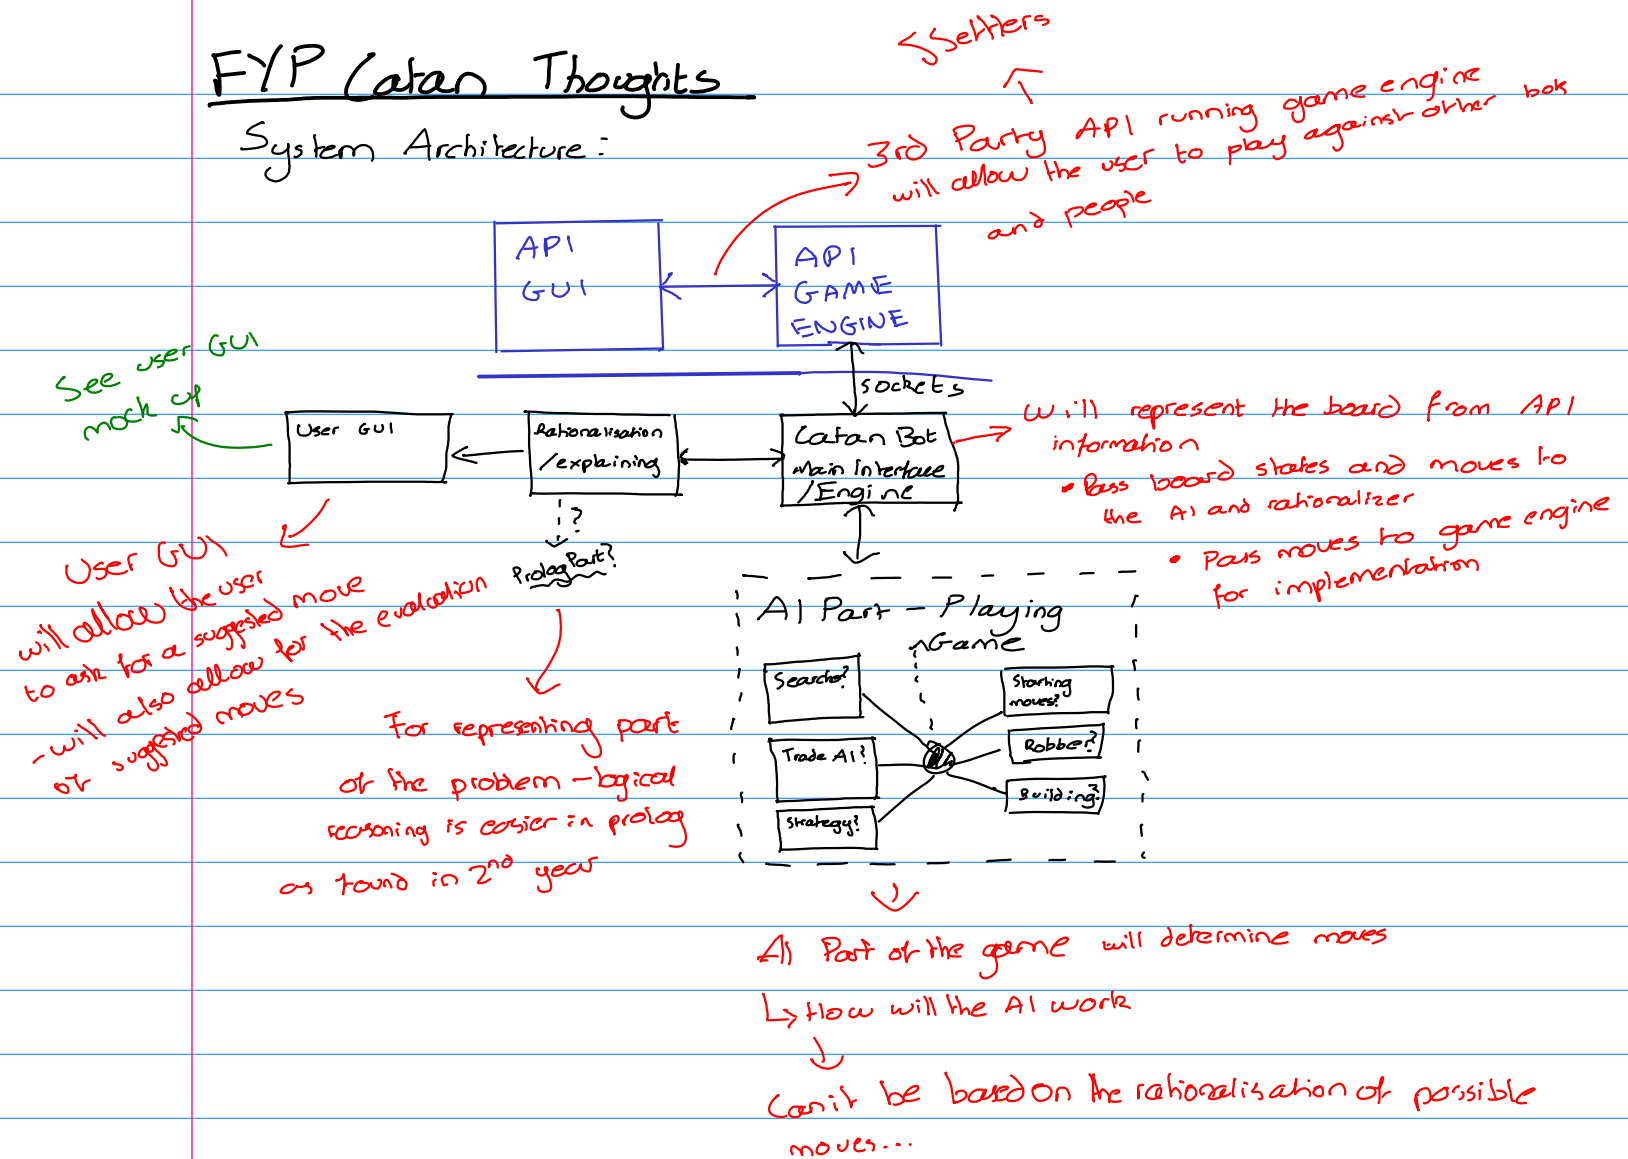 FYP Catan Thoughts
System Architecture:
JSettlers
3rd Party API running game engine
will allow the user to play against other bots
and people
API
GUI
API
GAME
ENGINE
sockets
See user GUI
mock up
User GUI
Rationalisation
/explaining
Catan Bot
Main Interface
/Engine
Will represent the board from API
information
• Pass board states and moves to
the AI and rationalizer
• Pass moves to game engine
for implementation
?
Prolog Part?
User GUI
will allow the user
to ask for a suggested move
- will also allow for the evaluation
of suggested moves
For representing part
of the problem - logical
reasoning is easier in prolog
as found in 2nd year
AI Part - Playing
Game
Search?
Trade AI?
Strategy?
Starting
moves?
Robber?
Building?
AI Part of the game will determine moves
How will the AI work
Can it be based on the rationalisation of possible
moves...